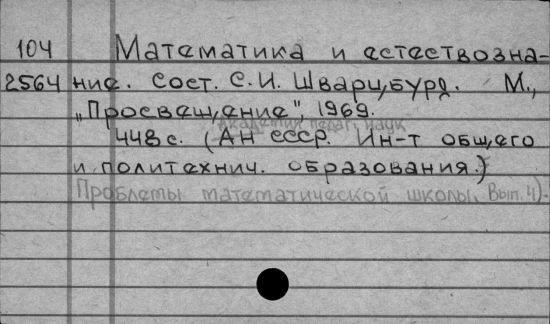 104 Математика и естествозна-
2564 ние. Сост. С.И. Шварцбурд. М.,
„Просвещение", 1969.
Академия педаг. наук
448 с. (АН СССР. Ин-т общего
и политехнич. образования.)
Проблемы математической школы, Вып. 4).